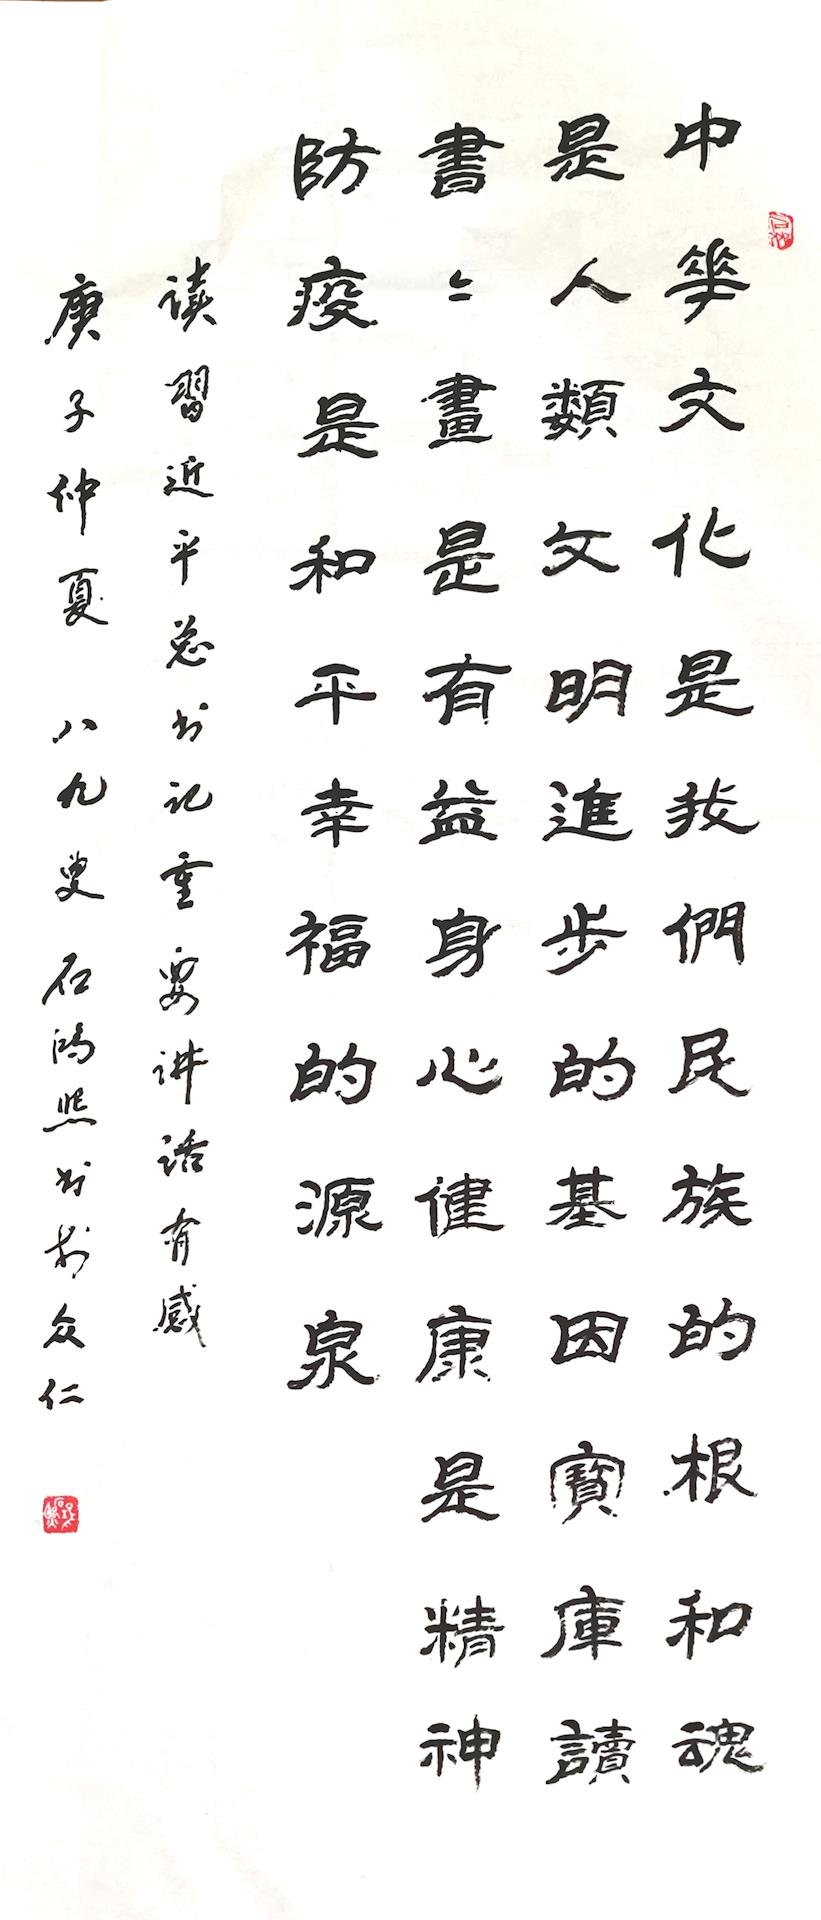 中華文化是我們民族的根和魂
是人類文明進步的基因寶庫讀
書〻畫是有益身心健康是精神
防疫是和平幸福的源泉
读習近平总书记重要讲话有感
庚子仲夏 八九叟 石鸿熙书于众仁